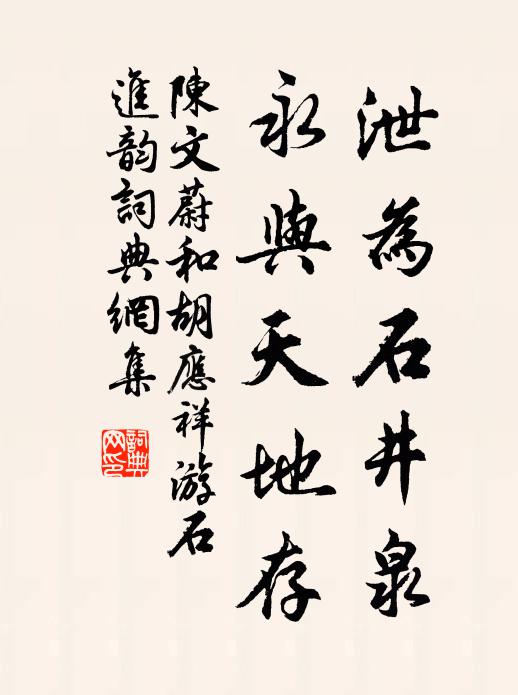 泄為石井泉
永與天地存
陳文蔚和胡應祥游石
進韵詞典網集
詞典網印